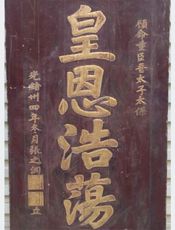 顧命重臣晉太子太保
皇恩浩蕩
光緒卅四年冬月張之洞
立